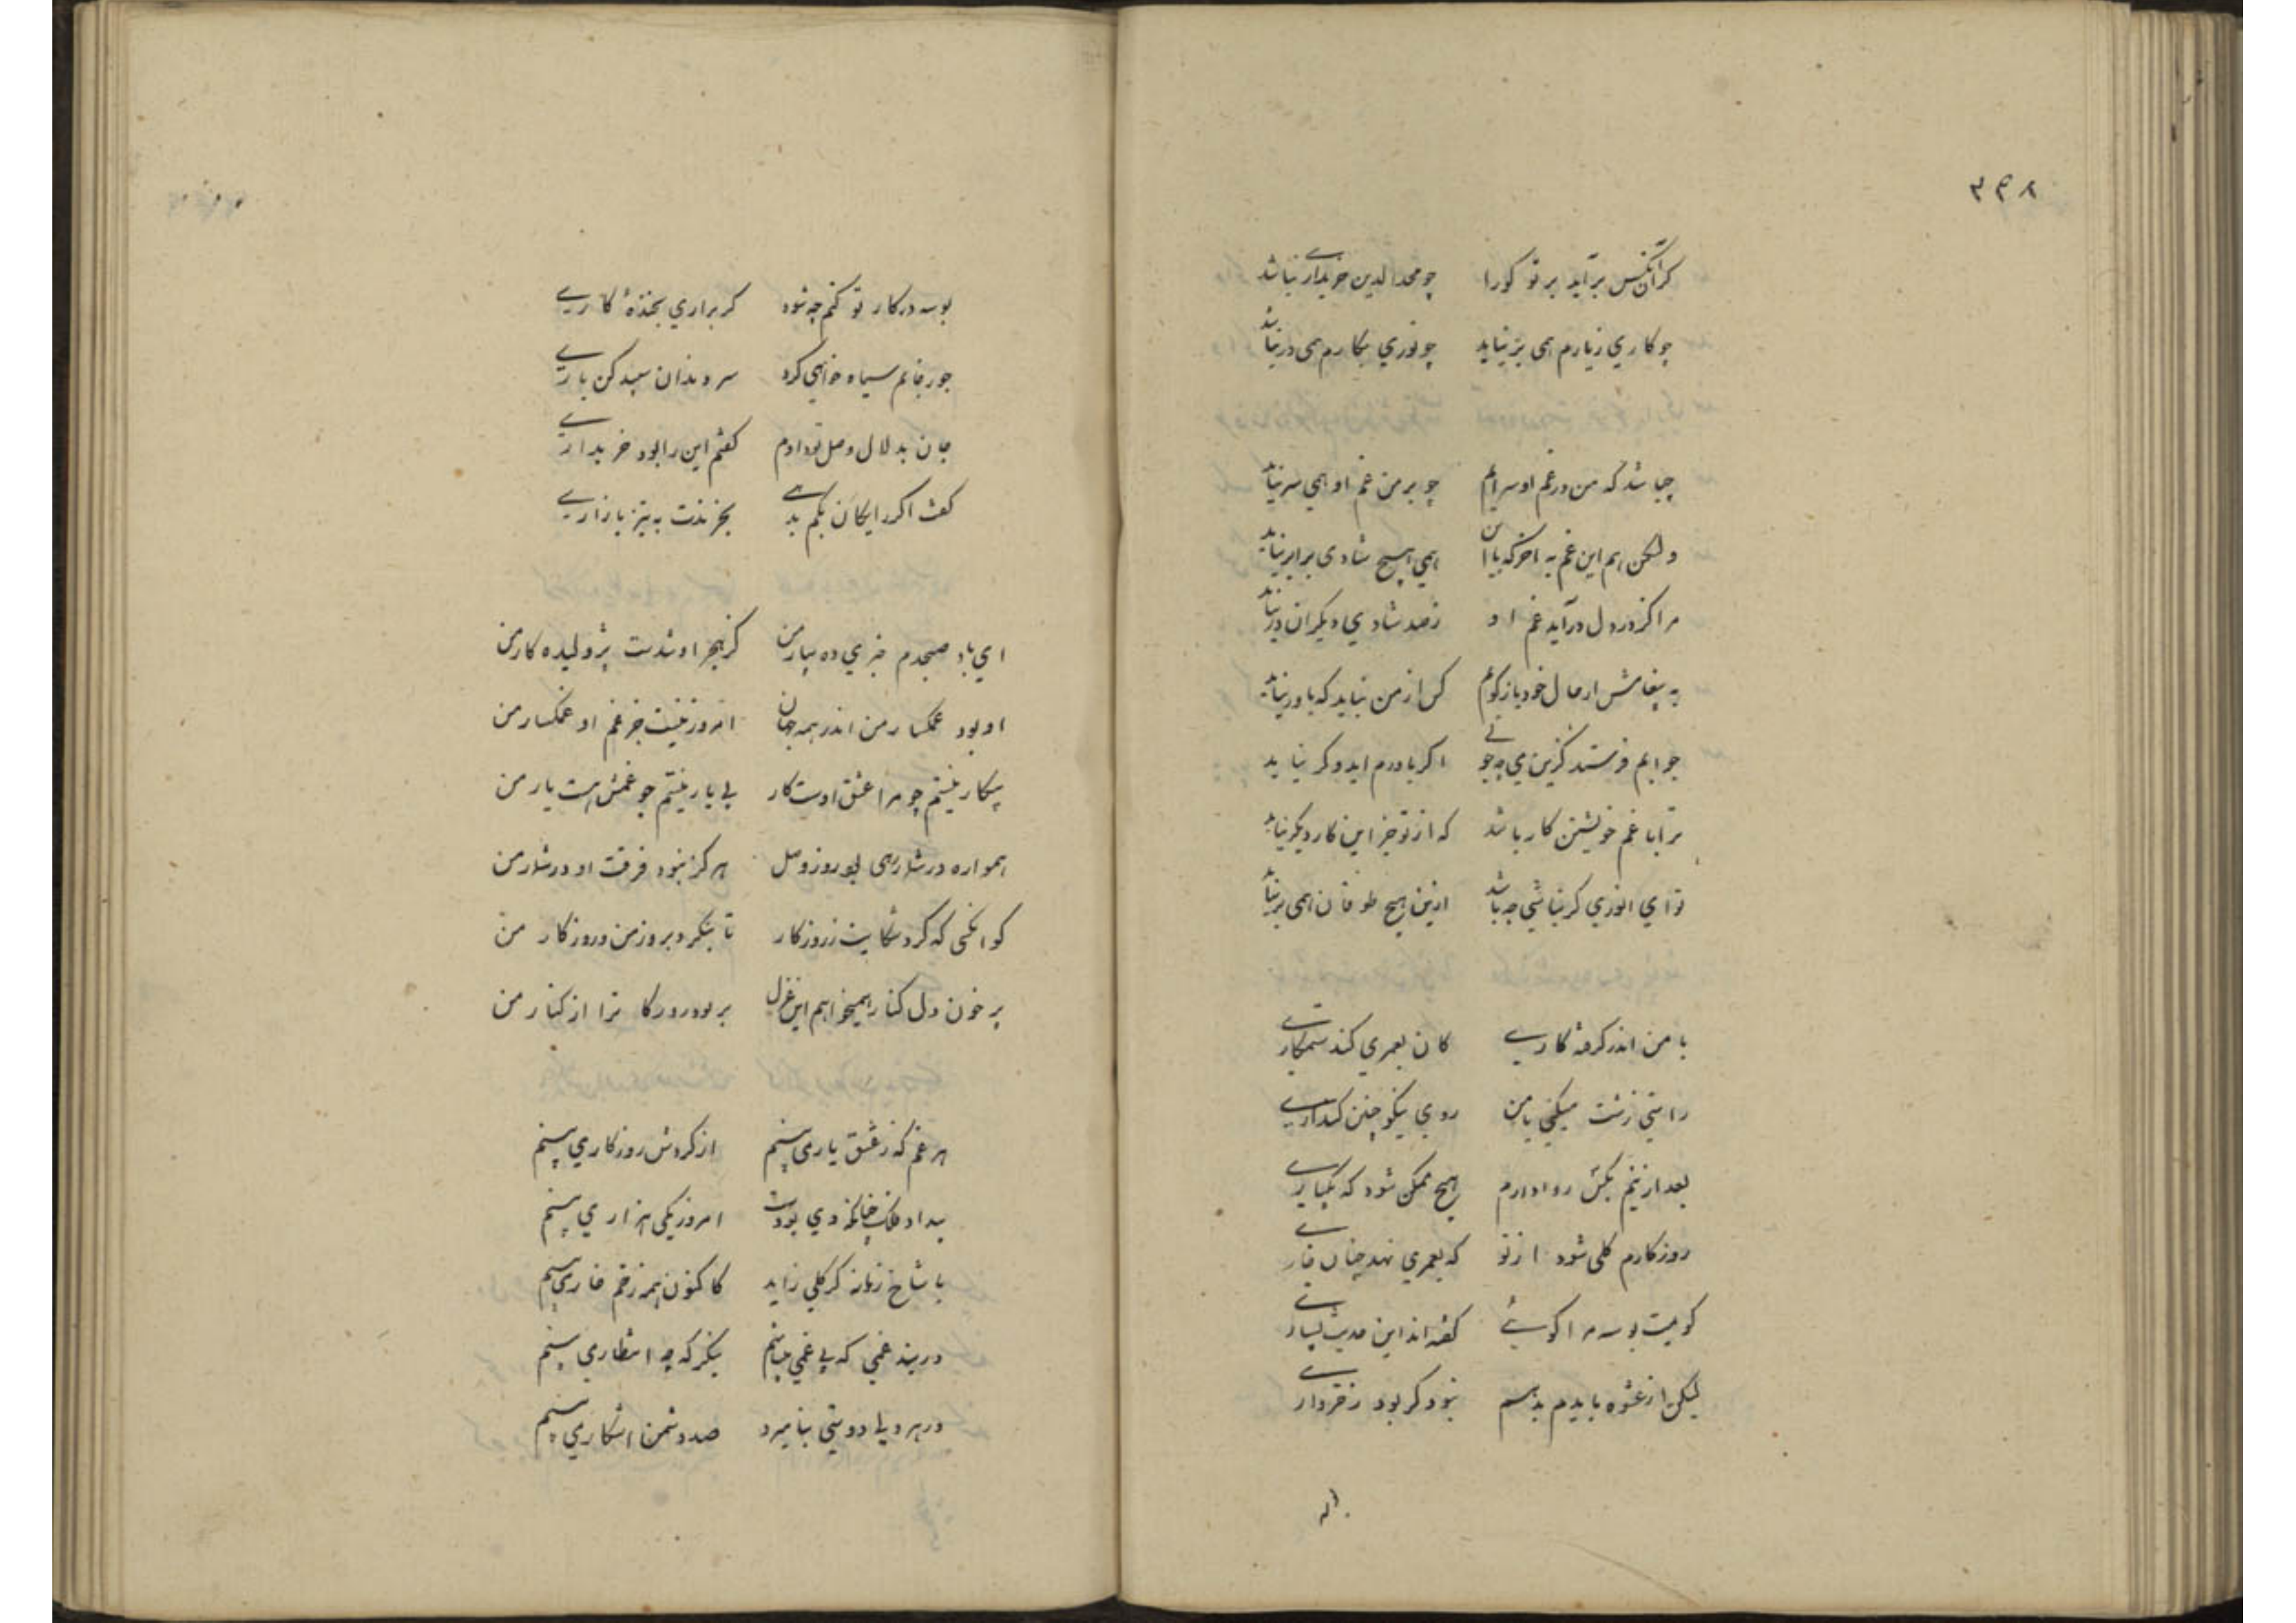 ۳۴۸
کرانکس برآید بر تو کورا چو مجدالدین خریداری نباشد
چو کاری زیارم همی برنیاید چو نوری بکارم همی درنیاید
چباشد که من در غم او سرایم چو بر من غم او همی سر نیاید
ولیکن هم این غم به اخر که با این همی هیچ شادی برابر نیاید
مرا کز در دل درآید غم او ز صد شادی دیکران در نیاید
به پیغامش از حال خود باز کویم کس از من نیاید که باور نیاید
جوابم فرستد کزین می چه جوئی اکر باورم اید و کر نیاید
ترا با غم خویشتن کار باشد که از تو جز این کار دیکر نیاید
تو ای انوری کر نباشی چه باشد ازین هیچ طوفان همی بر نیاید
با من اندر کرفته کاری کان بعمری کند ستمکاری
راستی زشت میکنی با من روی نیکو چنین کند آری
بعد ازینم بکش روا دارم هیچ ممکن شود که یکباری
روزکارم کلی شود از تو که بعمری نهد چنان خاری
کویمت بوسه مرا کوئی کفته اند این حدیث بسیاری
لیکن از عشوه بایدم بدهم نبود کر بود ز خرواری
بوسه در کار تو کنم چه شود کر براری بخنده کاری
چو رخانم سیاه خواهی کرد سر دندان سپید کن باری
جان بدلال وصل تو دادم کفتم این را بود خریداری
کفت اکر رایکان بکم بدهی بخرندت به تیز بازاری
ای باد صبحدم خبری ده بیار من کز هجر او شدست پژولیده کار من
او بود غمکسار من اندر همه جهان امروز نیست جز غم او غمکسار من
بیکار نیستم چو مرا عشق اوست کار بی یار نیستم چو غمش هست یار من
همواره در شمار همی بود روز وصل هرکز نبود فرقت او در شمار من
کو انکسی که کرد شکایت ز روزکار تا بنکرد بروز من و روزکار من
پر خون دل کنار همیخواهم این غزل بر بود روزکار ترا از کنار من
هر غم که ز عشق یار می بینم از کردش روزکار می بینم
بیداد فلک چنانکه دی بودست امروز یکی هزار می بینم
با شاخ زمانه کر کلی زاید کاکنون همه زخم خار می بینم
در بند غمی که بی غمی جانم بنکر که چه انتظار می بینم
در هر دیاا دوستی بنامیزد صد دشمن اشکار می بینم